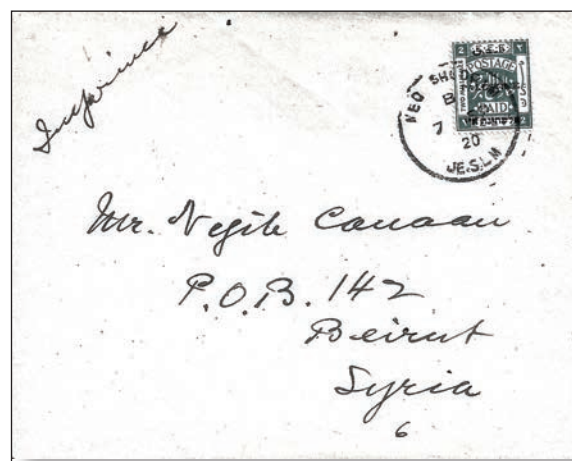 Imprimés
2 E.E.F. ٢
POSTAGE
PAID
NEO SHOO
B
7
20
JE.S.L.M
Mr. Negib Canaan
P.O.B. 142
Beirut
Syria
6